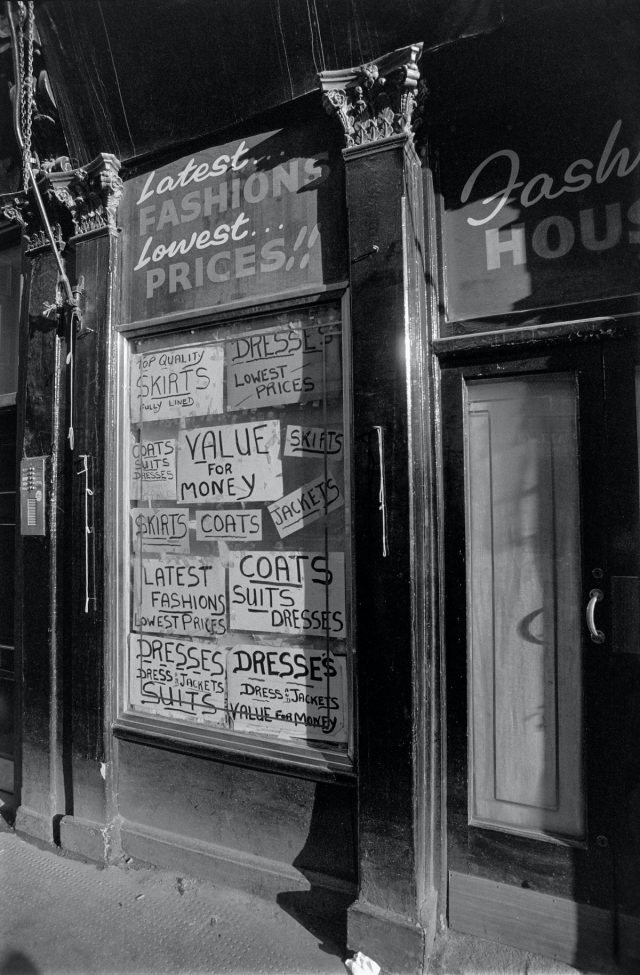 Latest...
FASHIONS
Lowest...
PRICES!!
Fash
HOUS
TOP QUALITY
SKIRTS
FULLY LINED
DRESSES
LOWEST
PRICES
COATS
SUITS
DRESSES
VALUE
FOR
MONEY
SKIRTS
SKIRTS
COATS
JACKETS
LATEST
FASHIONS
LOWEST PRICES
COATS
SUITS
DRESSES
DRESSES
DRESS AND JACKETS
SUITS
DRESSE'S
DRESS AND JACKETS
VALUE FOR MONEY